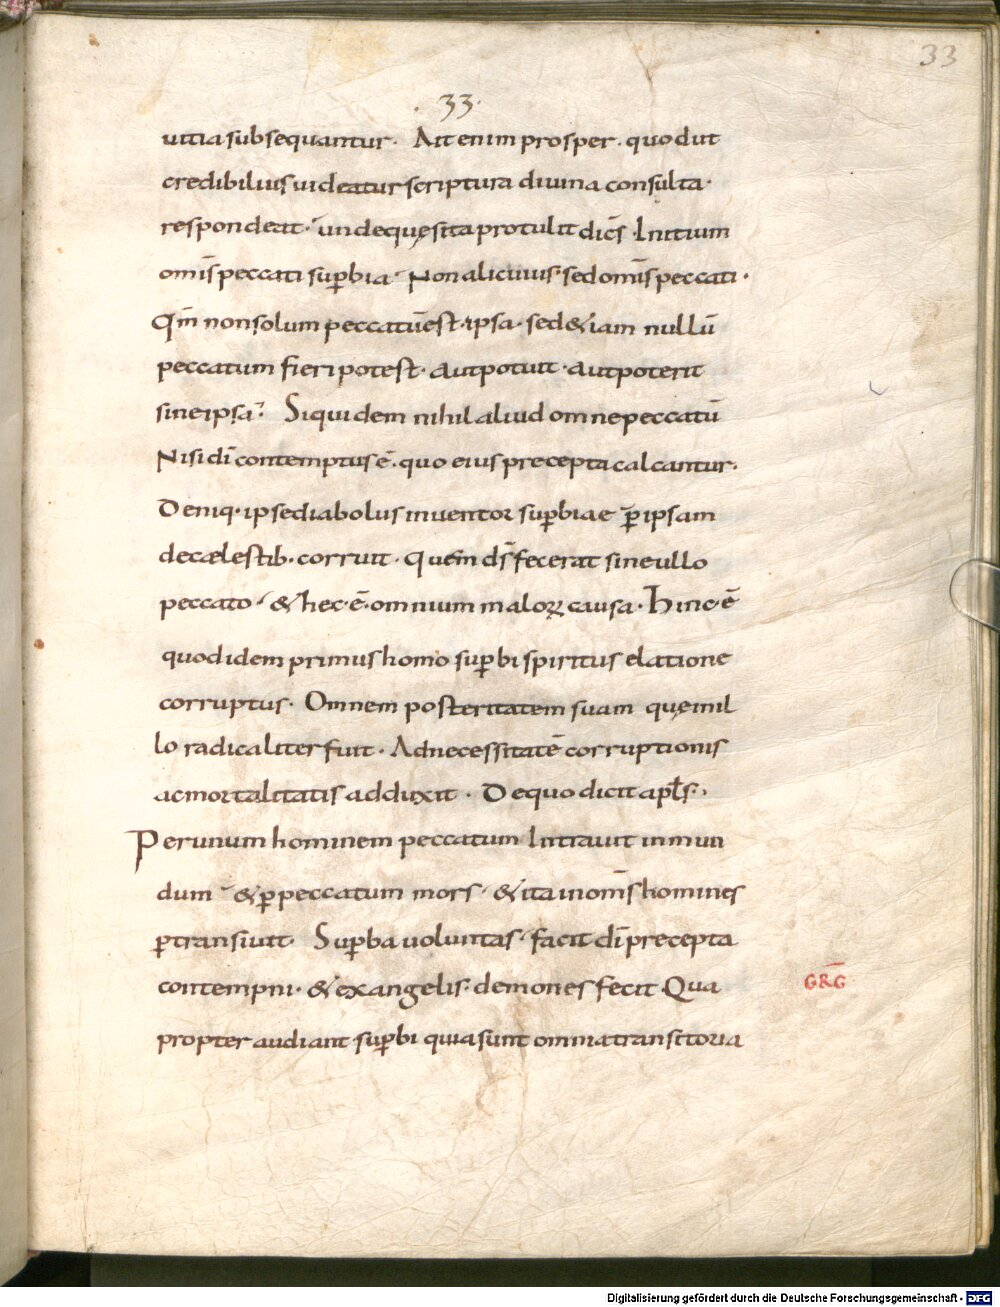 33
33
uitia subsequantur. Ait enim prosper. quod ut
credibilius uideatur scriptura diuina consulta.
respondeat. unde quęsita protulit dicẽs. Initium
om̃is peccati suꝑbia. Non alicuius sed om̃is peccati.
Qm̃ non solum peccatũ est ipsa. sed &iam nullũ
peccatum fieri potest. aut potuit. aut poterit
sine ipsa. Siquidem nihil aliud omne peccatũ
Nisi dĩ contemptus ẽ. quo eius precepta calcantur.
Deniq. ipse diabolus inuentor suꝑbiae ꝑ ipsam
de cælestib. corruit. Quem ds̃ fecerat sine ullo
peccato. & hec ẽ. omnium maloꝝ causa. Hinc ẽ
quod idem primus homo suꝑbi spiritus elatione
corruptus. Omnem posteritatem suam quę in il
lo radicaliter fuit. Ad necessitatẽ corruptionis
ac mortalitatis adduxit. De quo dicit apłs.
Per unum hominem peccatum Intrauit in mun
dum & ꝑ peccatum mors. & ita in om̃s homines
ꝑtransiuit. Suꝑba uoluntas. facit dĩ precepta
contempni. & ex angelis demones fecit. Qua
GRG̃
propter audiant suꝑbi quia sunt omnia transitoria
Digitalisierung gefördert durch die Deutsche Forschungsgemeinschaft - DFG